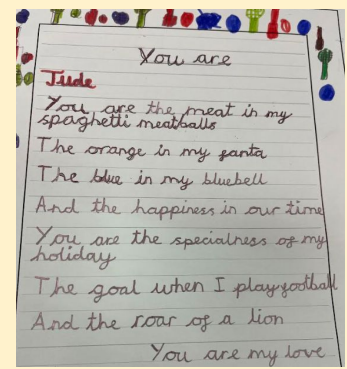 You are
Jude
You are the meat in my
spaghetti meatballs
The orange in my fanta
The blue in my bluebell
And the happiness in our time
You are the specialness of my
holiday
The goal when I play football
And the roar of a lion
You are my love